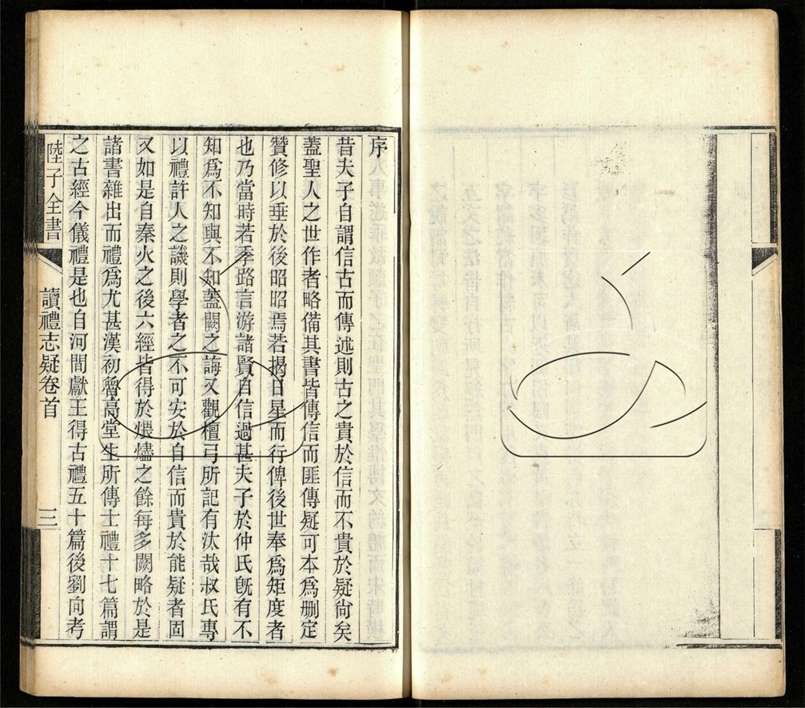 序
昔夫子自謂信古而傳述則古之貴於信而不貴於疑尙矣
蓋聖人之世作者略備其書皆傳信而匪傳疑可本爲刪定
贊修以垂於後昭昭焉若揭日星而行俾後世奉爲矩度者
也乃當時若季路言游諸賢自信過甚夫子於仲氏旣有不
知爲不知與不知蓋闕之誨又觀檀弓所記有汰哉叔氏專
以禮許人之譏則學者之不可安於自信而貴於能疑者固
又如是自秦火之後六經皆得於煨燼之餘每多闕略於是
諸書雜出而禮爲尤甚漢初魯高堂生所傳士禮十七篇謂
之古經今儀禮是也自河間獻王得古禮五十篇後劉向考
陸子全書
讀禮志疑卷首
三